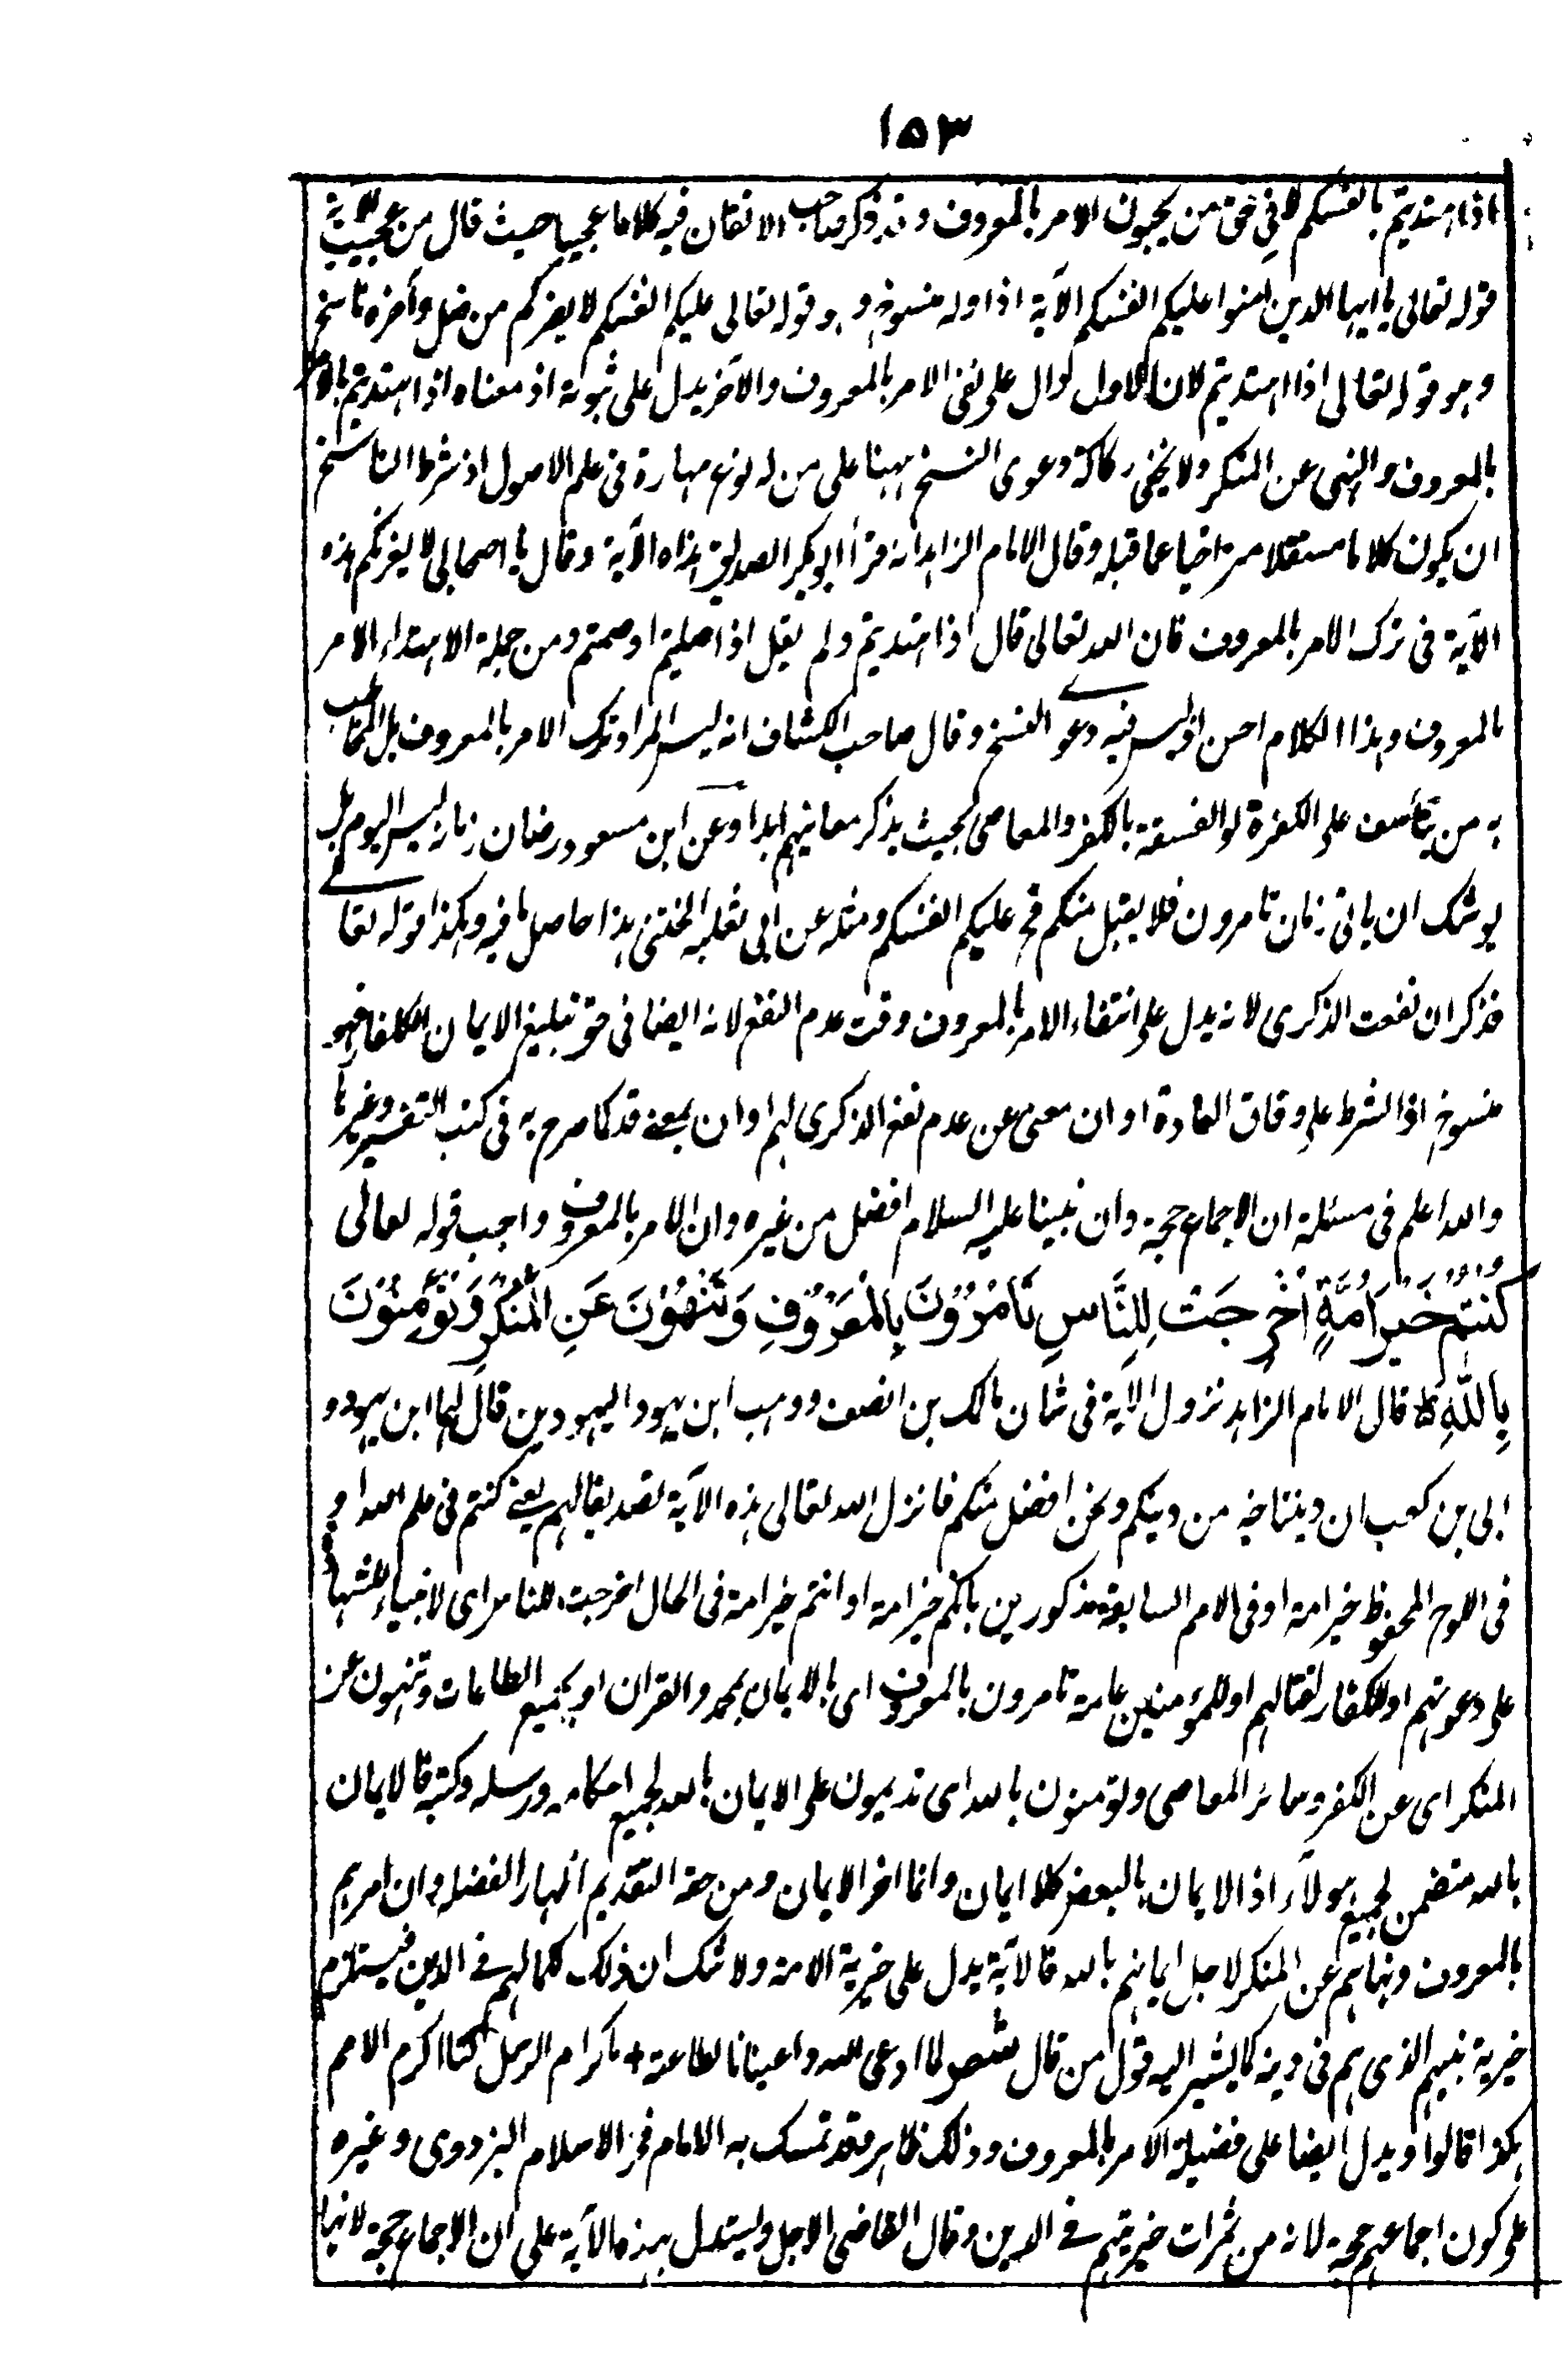 ١٥٣
اذا اهتديتم بانفسكم لا في حق من يحبون الامر بالمعروف وقد ذكر صاحب الاتقان فيه كلاما عجيبا حيث قال من عجيب الآية
قوله تعالى يا ايها الذين امنوا عليكم انفسكم الآية اذ اوله منسوخ وهو قوله تعالى عليكم انفسكم لا يضركم من ضل وآخره ناسخ
وهو قوله تعالى اذا اهتديتم لان الاول دال على نفى الامر بالمعروف والآخر يدل على ثبوته اذ معناه اذا اهتديتم بالامر
بالمعروف والنهى عن المنكر ولا يخفى ركاكة دعوى النسخ ههنا على من له نوع مهارة فى علم الاصول اذ شرط الناسخ
ان يكون كلاما مستقلا متراخيا عما قبله وقال الامام الزاهد انه قرأ ابو بكر الصديق هذه الآية وقال يا اصحابى لا يغرنكم هذه
الآية فى ترك الامر بالمعروف فان الله تعالى قال اذا اهتديتم ولم يقل اذا صليتم او صمتم ومن جملة الاهتداء الامر
بالمعروف وهذا الكلام احسن اذ ليس فيه دعوى النسخ وقال صاحب الكشاف انه ليس المراد ترك الامر بالمعروف بل المخاطب
به من يتأسف على الكفرة او الفسقة بالكفر والمعاصى بحيث يذكر معائبهم ابدا وعن ابن مسعود رض ان زمانه ليس اليوم بل
يوشك ان ياتى زمان تامرون فلا يقبل منكم فح عليكم انفسكم ومثله عن ابى ثعلبة الخشنى هذا حاصل ما فيه وهكذا قوله تعالى
فذكر ان نفعت الذكرى لانه يدل على انتفاء الامر بالمعروف وقت عدم النفع لانه ايضا فى حق تبليغ الايمان للكفار فهو
منسوخ اذا الشرط على وفاق العادة او ان معنى عن عدم نفع الذكرى لهم او ان بمعنى قد كما صرح به فى كتب التفسير وغيرها
والله اعلم فى مسئلة ان الاجماع حجة وان نبينا عليه السلام افضل من غيره وان الامر بالمعروف واجب قوله تعالى
كُنْتُمْ خَيْرَ اُمَّةٍ اُخْرِجَتْ لِلنَّاسِ تَأْمُرُوْنَ بِالْمَعْرُوْفِ وَتَنْهَوْنَ عَنِ الْمُنْكَرِ وَتُؤْمِنُوْنَ
بِاللّٰهِ ط قال الامام الزاهد نزول الآية فى شان مالك بن الضيف ووهب ابن يهود اليهودين قال لهما ابن يهود و
ابى بن كعب ان ديننا خير من دينكم ونحن افضل منكم فانزل الله تعالى هذه الآية تصديقا لهم يعنى كنتم فى علم الله او
فى اللوح المحفوظ خير امة او فى الامم السابقة مذكورين بانكم خير امة او انتم خير امة فى الحال اخرجت للناس اى لانبياء للشهادة
على دعوتهم او للكفار لقتالهم او للمؤمنين عامة تامرون بالمعروف اى بالايمان بمحمد والقران او بجميع الطاعات وتنهون عن
المنكر اى عن الكفر وسائر المعاصى وتؤمنون بالله اى تديمون على الايمان بالله بجميع احكامه ورسله وكتبه فالايمان
بالله متضمن بجميع هولاء اذ الايمان بالبعض كلا ايمان وانما اخر الايمان ومن حقه التقديم اظهار الفضله وان امرهم
بالمعروف ونهاهم عن المنكر لاجل ايمانهم بالله فالآية يدل على خيرية الامة ولا شك ان ذلك كمالهم فى الدين فيستلزم
خيرية نبيهم الذى هم فى دينه كما يشير اليه قول من قال شعر لما ادعى الله داعينا لطاعته + باكرام الرسل كنا اكرم الامم
هكذا قالوا ويدل ايضا على فضيلة الامر بالمعروف وذلك ظاهر وقد تمسك به الامام فخر الاسلام البزدوى وغيره
على كون اجماعهم حجة لانه من ثمرات خيريتهم فى الدين وقال القاضى الاجل ويستدل بهذه الآية على ان الاجماع حجة لانها